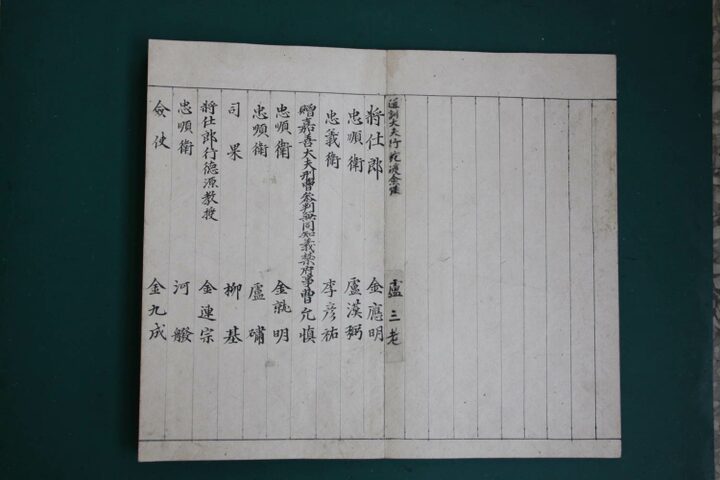 通訓大夫行 盧三老
將仕郎 金應明
忠順衛 盧漢弼
忠義衛 李彦祐
贈嘉善大夫刑曹叅判兼同知義禁府事曹允愼
忠順衛 金就明
忠順衛 盧礴
司果 柳基
將仕郎行德源教授 金連宗
忠順衛 河艥
僉使 金九成